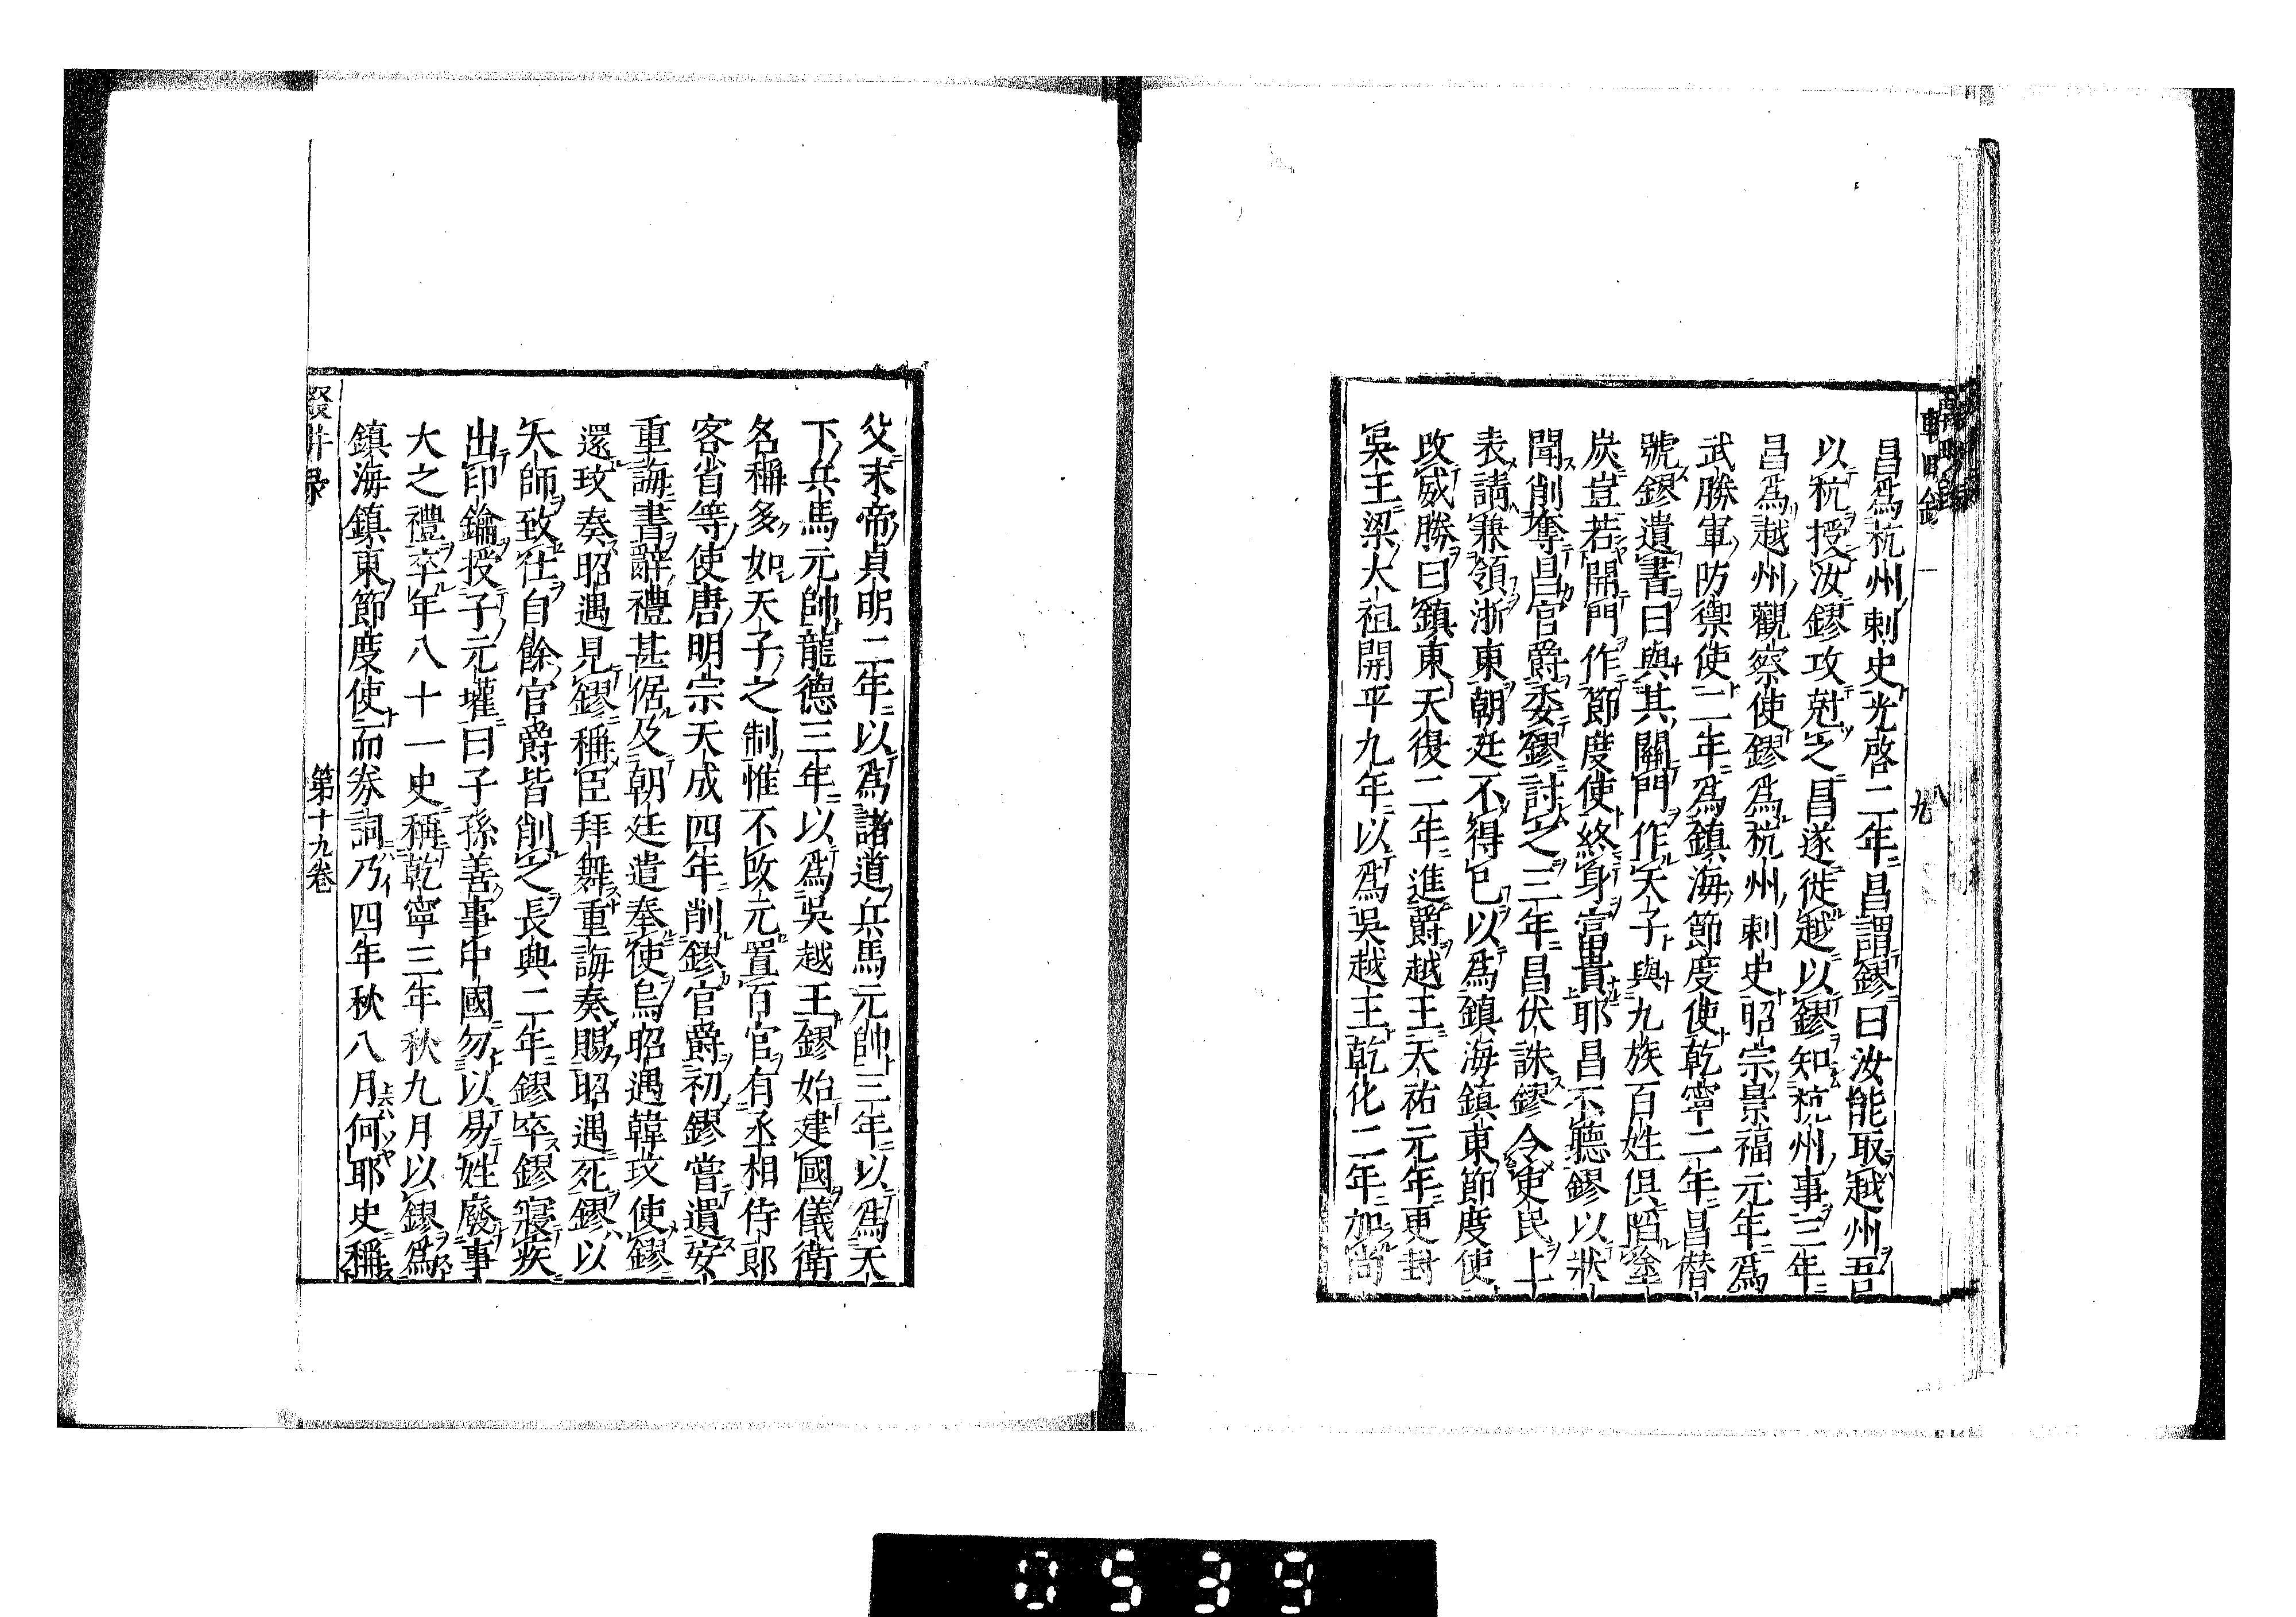 昌爲杭州刺史光啓二年昌謂鏐曰汝能取越州吾
以杭授汝鏐攻尅之昌遂徙越以鏐知杭州事三年
昌爲越州觀察使鏐爲杭州刺史昭宗景福元年爲
武勝軍防禦使二年爲鎮海節度使乾寧二年昌僣
號鏐遺書曰與其關門作天子與九族百姓俱陷塗
炭豈若開門作節度使終身富貴耶昌不聽鏐以狀
聞削奪昌官爵委鏐討之三年昌伏誅鏐令吏民上
表請兼領浙東朝廷不得已以爲鎮海鎮東節度使
改威勝曰鎮東天復二年進爵越王天祐元年更封
吳王梁太祖開平九年以爲吳越王乾化二年加尚
父末帝貞明二年以爲諸道兵馬元帥三年以爲天
下兵馬元帥龍德三年以爲吳越王鏐始建國儀衛
名稱多如天子之制惟不改元置百官有丞相侍郎
客省等使唐明宗天成四年削鏐官爵初鏐嘗遺安
重誨書辭禮甚倨及朝廷遣奉使烏昭遇韓玫使鏐
還玫奏昭遇見鏐稱臣拜舞重誨奏賜昭遇死鏐以
太師致仕自餘官爵皆削之長興二年鏐卒鏐寢疾
出印鑰授子元瓘曰子孫善事中國勿以易姓廢事
大之禮卒年八十一史稱乾寧三年秋九月以鏐爲
鎮海鎮東節度使而券詞乃四年秋八月何耶史稱
第十九卷